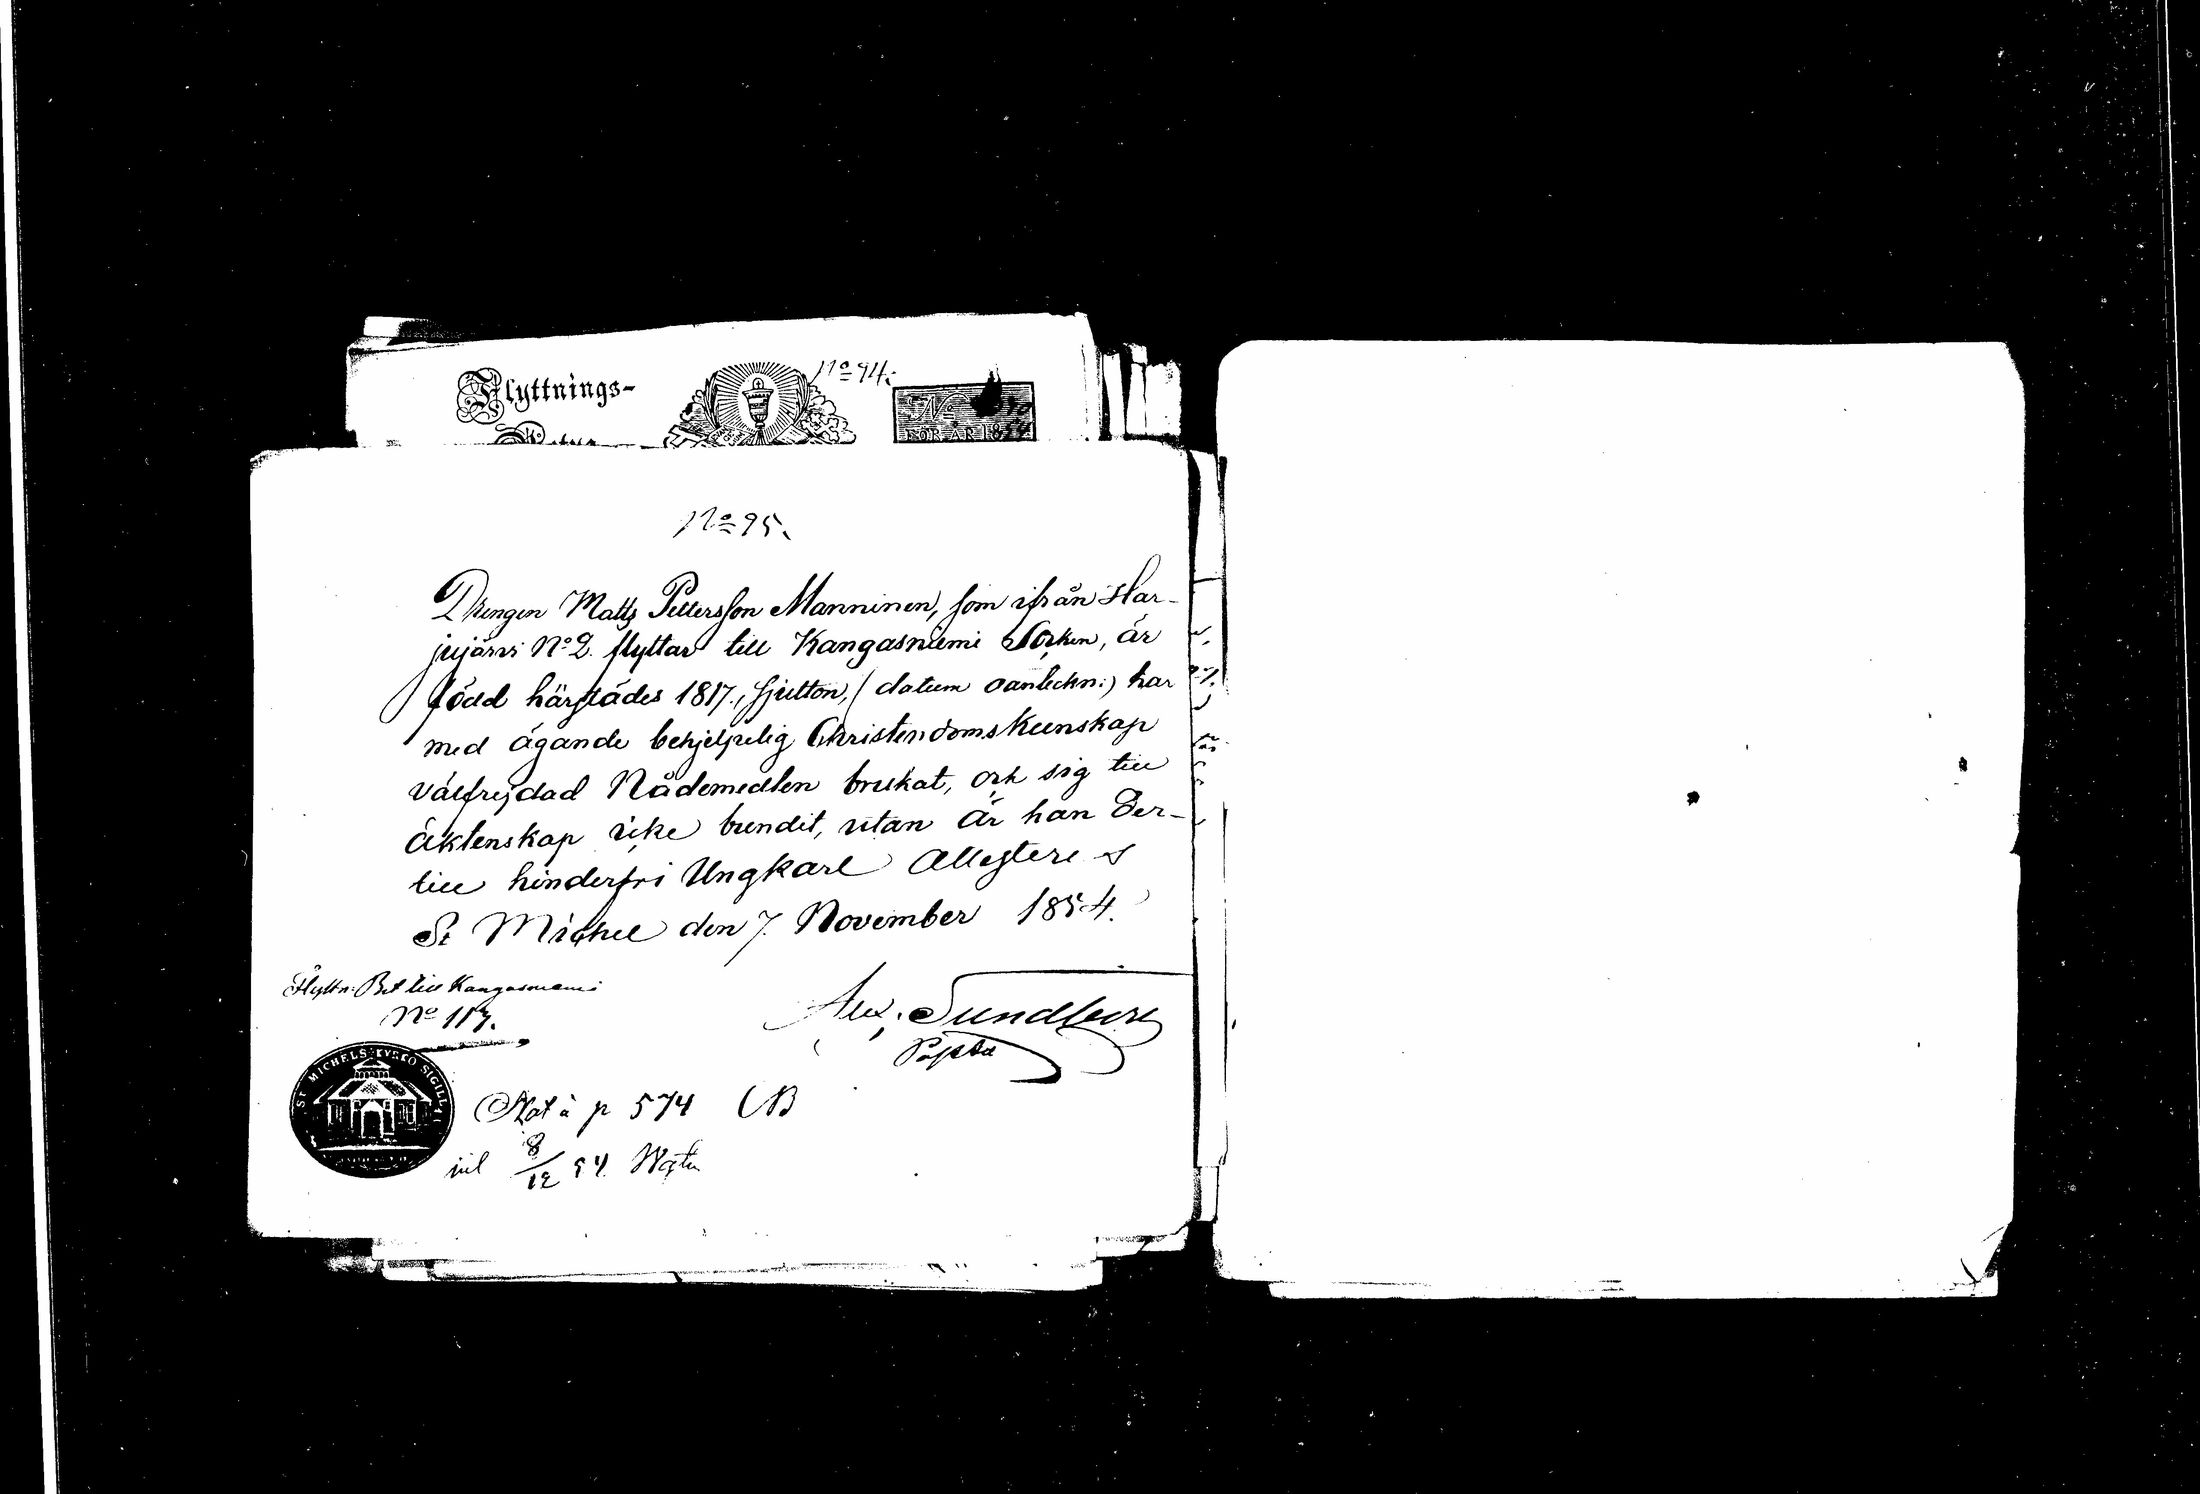 Flyttnings-
No 94.
No
FÖR ÅR 1854
No 95.
Drengen Matts Pettersson Manninen, som ifrån Har-
jujärvi No 2. flyttar till Kangasniemi Socken, är
född härstädes 1817, sjutton, (datum oanteckn:) har
med ägande behjelpelig Christendoms Kunskap
välfrejdad Nådemedlen brukat, och sig till
äktenskap icke bundit, utan är han der-
till hinderfri Ungkarl Attesteras
St Michel den 7. November 1854.
Flyttn: Bet till Kangasniemi
No 117.
Alex. Sundberg
ST MICHELS KYRKO SIGILL
Not à p 574
8/12 54.